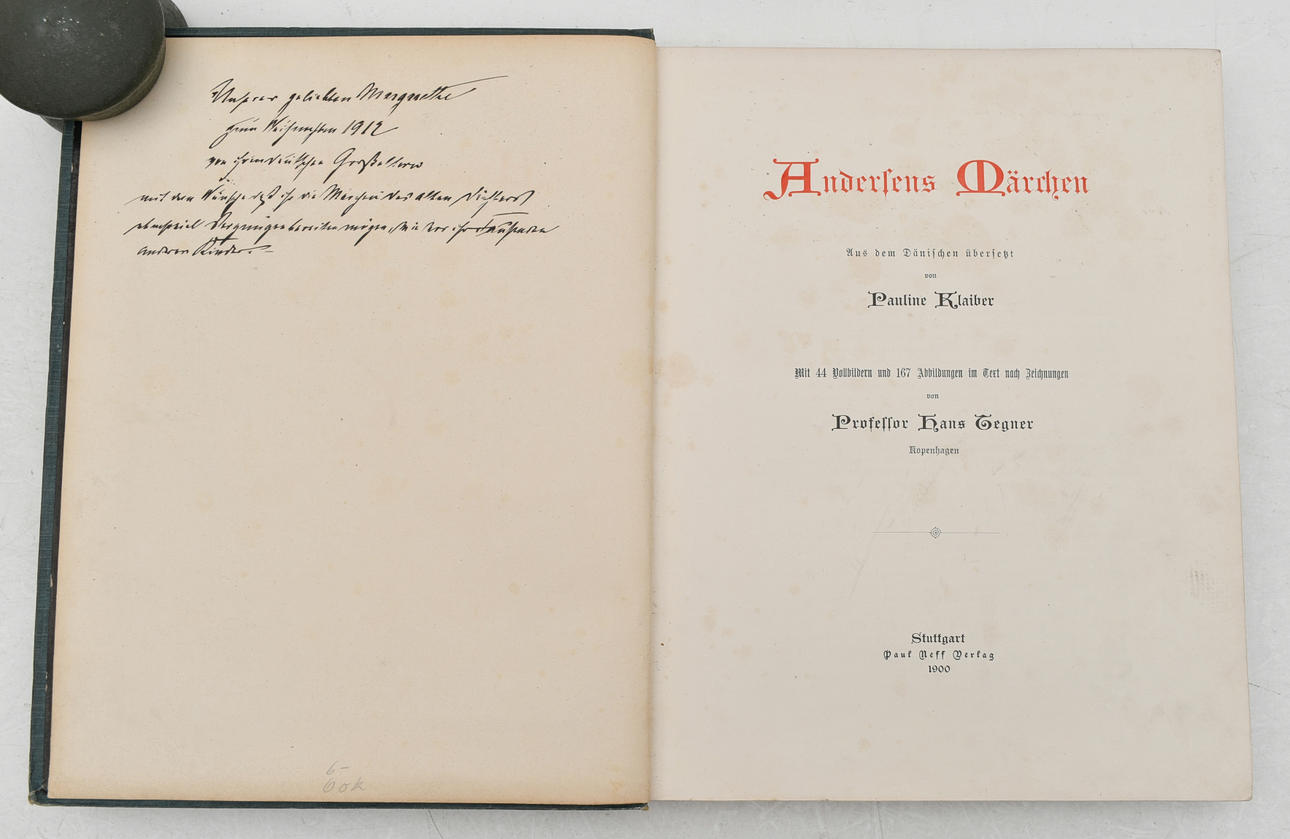 Unserer geliebten Margarethe
zum Weihnachten 1912
von ihren deutschen Großeltern
mit dem Wunsche daß ihr die Märchen des alten Dichters
ebensoviel Vergnügen bereiten mögen, wie vor ihr Tausenden
anderen Kinder.
6-
60k
Andersens Märchen
Aus dem Dänischen übersetzt
von
Pauline Klaiber
Mit 44 Vollbildern und 167 Abbildungen im Text nach Zeichnungen
von
Professor Hans Tegner
Kopenhagen
Stuttgart
Paul Neff Verlag
1900